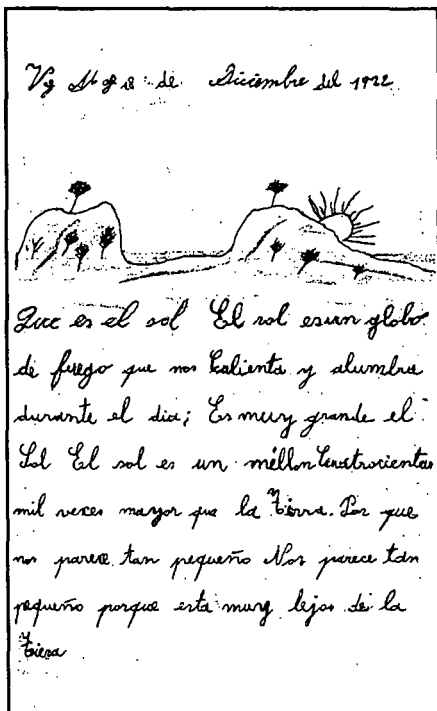 de Diciembre del 1922
Que es el sol El sol es un globo
de fuego que nos Calienta y alumbra
durante el dia; Es muy grande el
Sol El sol es un méllon Cuatrocientas
mil veces mayor que la Tierra. Por que
nos parece tan pequeño Nos parece tan
pequeño porque esta muy lejos de la
Tierra